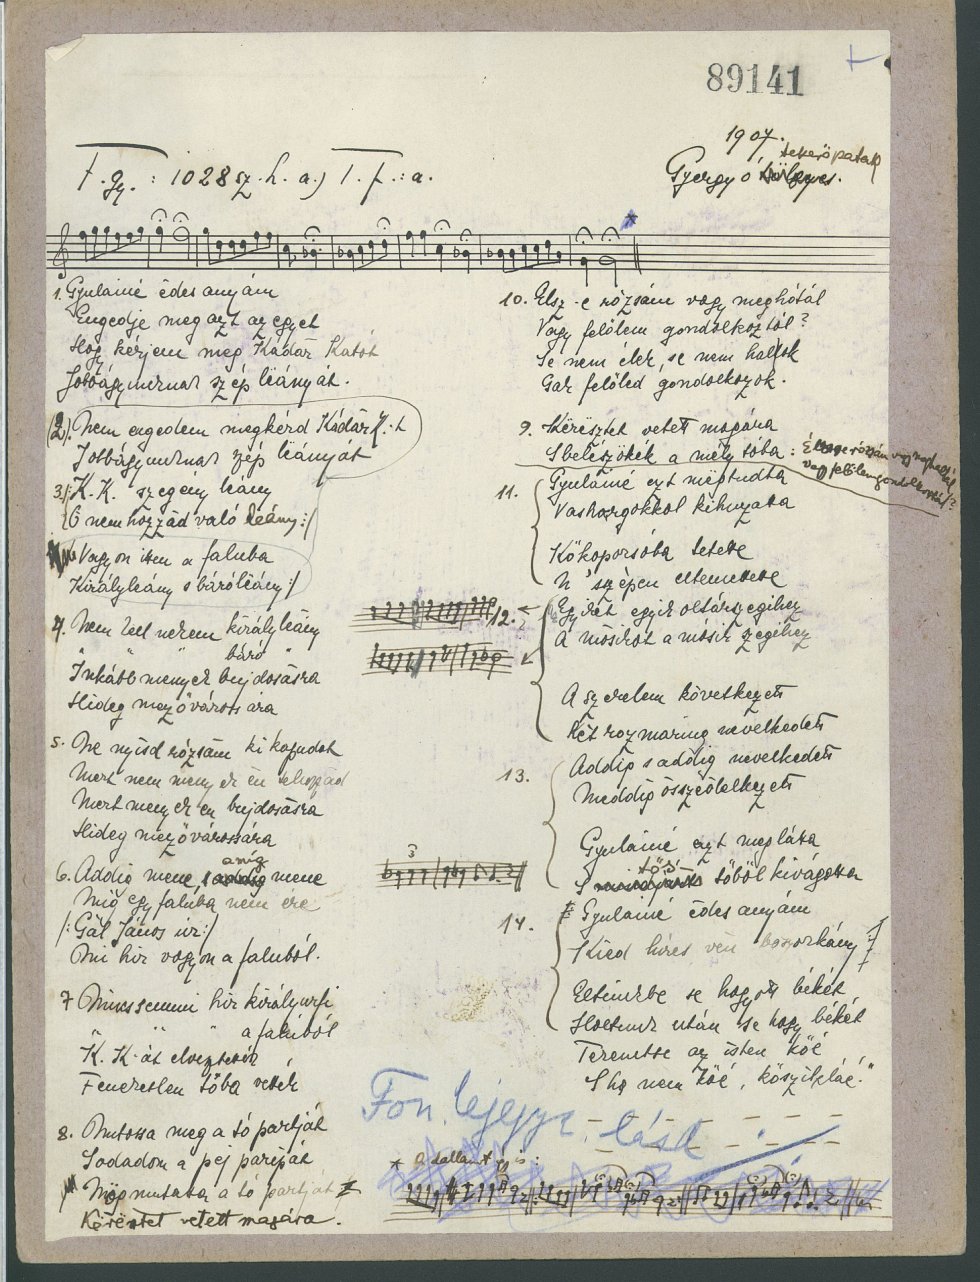 89141
1907.
tekerőpatak
F. gy. : 1028 sz. h. a.) T. f. : a.
Gyergyó
1. Gyulainé édes anyám
Engedje meg azt az egyet
Hogy kérjem meg Kádár Katót
Jobbágyunknak szép leányát.
(2). Nem engedem megkérd Kádár K.-t
Jobbágyunknak szép leányát
3. /: K. K. szegény leány
Ő nem hozzád való leány :/
Vagyon itten a faluba
Királyleány s báróleány :/
4. Nem kell nekem királyleány
" " " báró "
Inkább menyek bujdosásra
Hideg mezővárosára
5. Ne nyisd rózsám ki kapudot
Mert nem menyek én tehozzád
Mert menyek én bujdosásra
Hideg mezővárossára
amíg
6. Addig mene, mene
Míg egy faluba nem ére
/: Gál János úr :/
Mi hír vagyon a faluból.
7 Nincs semmi hír királyurfi
" " " a faluból
K. K-át elvesztették
Feneketlen tóba vették
8. Mutassa meg a tó partját
S odadom a pej paripát
Megmutata a tó partját
Körésztet vetett magára.
10. Élsz-e rózsám vagy meghótál
Vagy felőlem gondolkoztál?
Se nem élek, se nem halok
Csak felőled gondolkozok.
9. Kërësztet vetett magára
S beleszökék a mély tóba :
Élsz-e rózsám vagy meghaltál
vagy felőlem gondolkoztál?
11. Gyulainé ezt megtudta
Vashorgokkol kihuzata
Kőkoporsóba tetette
N' szépen eltemettette
12. Egyikët egyik oltárszegihez
A másikot a másik szegihez
A szerelem következett
Két rozmaring nevelkedett
13. Addig s addig nevelkedett
Meddig összeölelkezett
Gyulainé ezt meglátta
tőről
S tőből kivágatta
14. Gyulainé édes anyám
Kied híres vén boszorkány
Életünkbe se hagyott békét
Holtunk után se hagy békét
Teremtse az isten kőé
S ha nem kőé, kőszikláé."
3
Fon. lejegyz. lásd
* a dallam így is :